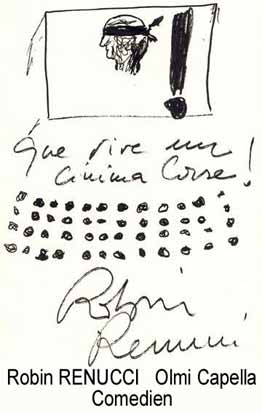 Que vive un
cinéma Corse !
Robin
Renucci
Robin RENUCCI Olmi Capella
Comedien